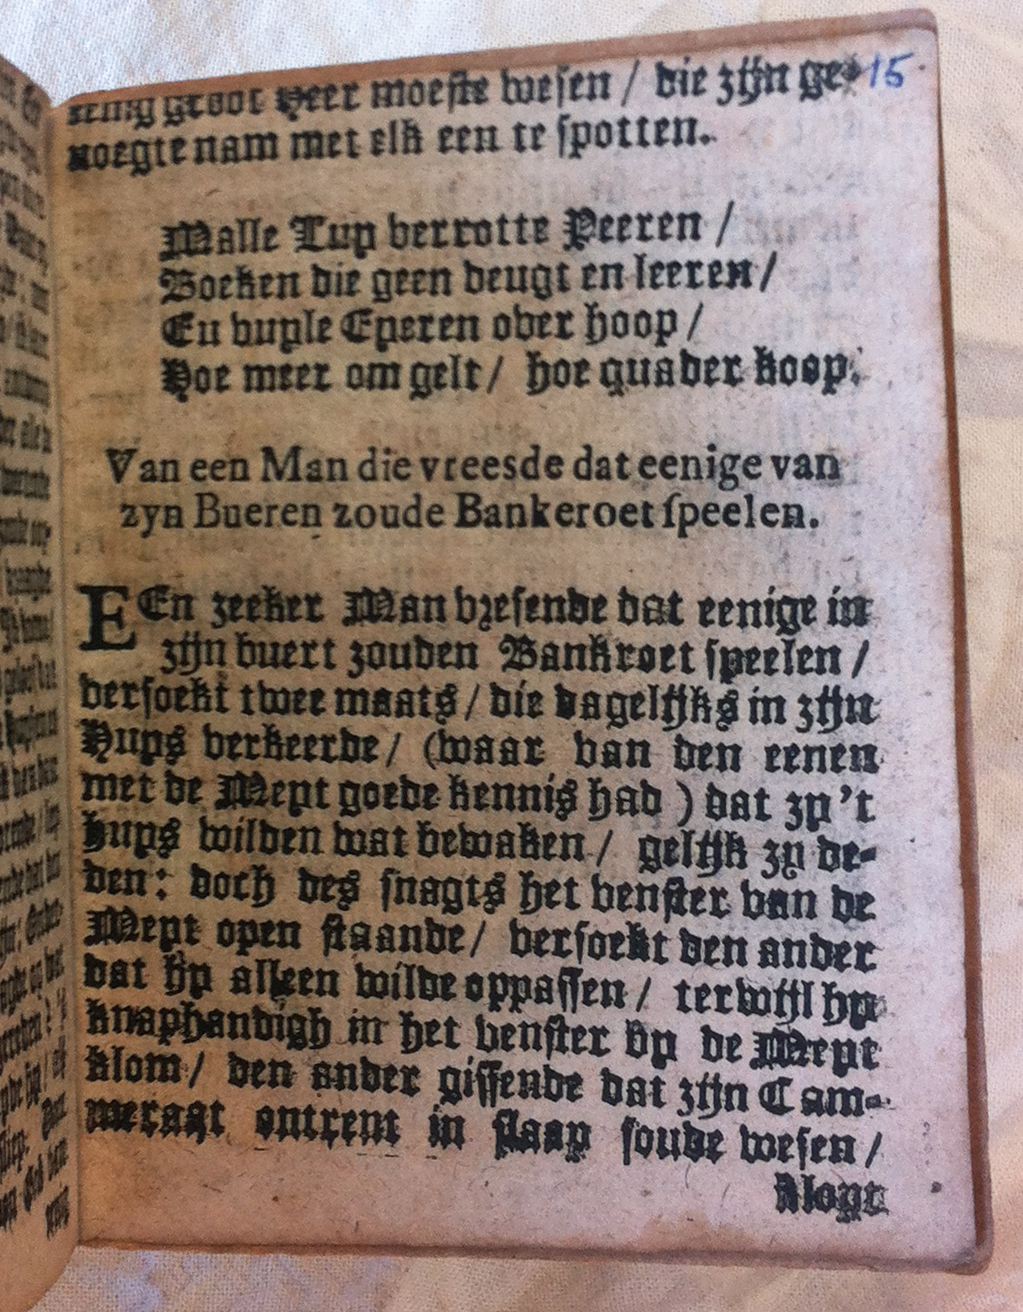 eenig groot Heer moeste wesen / die zijn ge- 15
noegte nam met elk een te spotten.
Malle Luy verrotte Peeren /
Boeken die geen deugt en leeren /
En vuyle Eyeren over hoop /
Hoe meer om gelt / hoe quader koop.
Van een Man die vreesde dat eenige van
zyn Bueren zoude Bankeroet speelen.
EEn zeeker Man vresende dat eenige in
zijn buert zouden Bankroet speelen /
versoekt twee maats / die dagelijks in zijn
Huys verkeerde / (waar van den eenen
met de Meyt goede kennis had) dat zy 't
huys wilden wat bewaken / gelijk zy de-
den: doch des snagts het venster van de
Meyt open staande / versoekt den ander
dat hy alleen wilde oppassen / terwijl hy
knaphandigh in het venster by de Meyt
klom / den ander gissende dat zijn Cam-
meraat ontrent in slaap soude wesen /
klopt